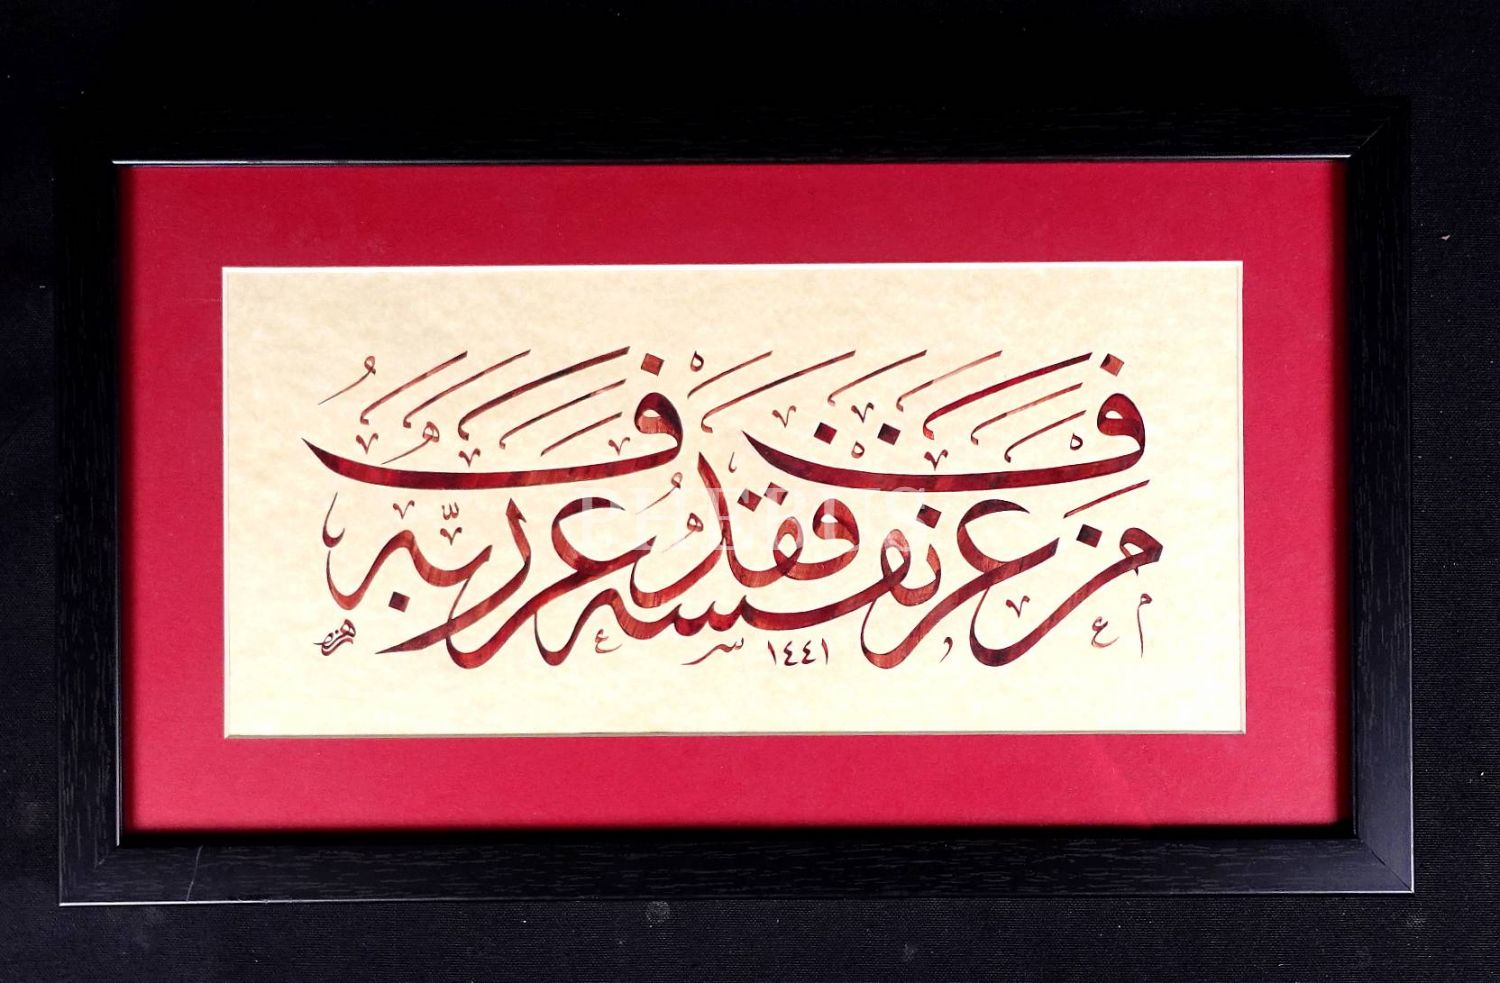 من عرف نفسه فقد عرف ربه
١٤٤١